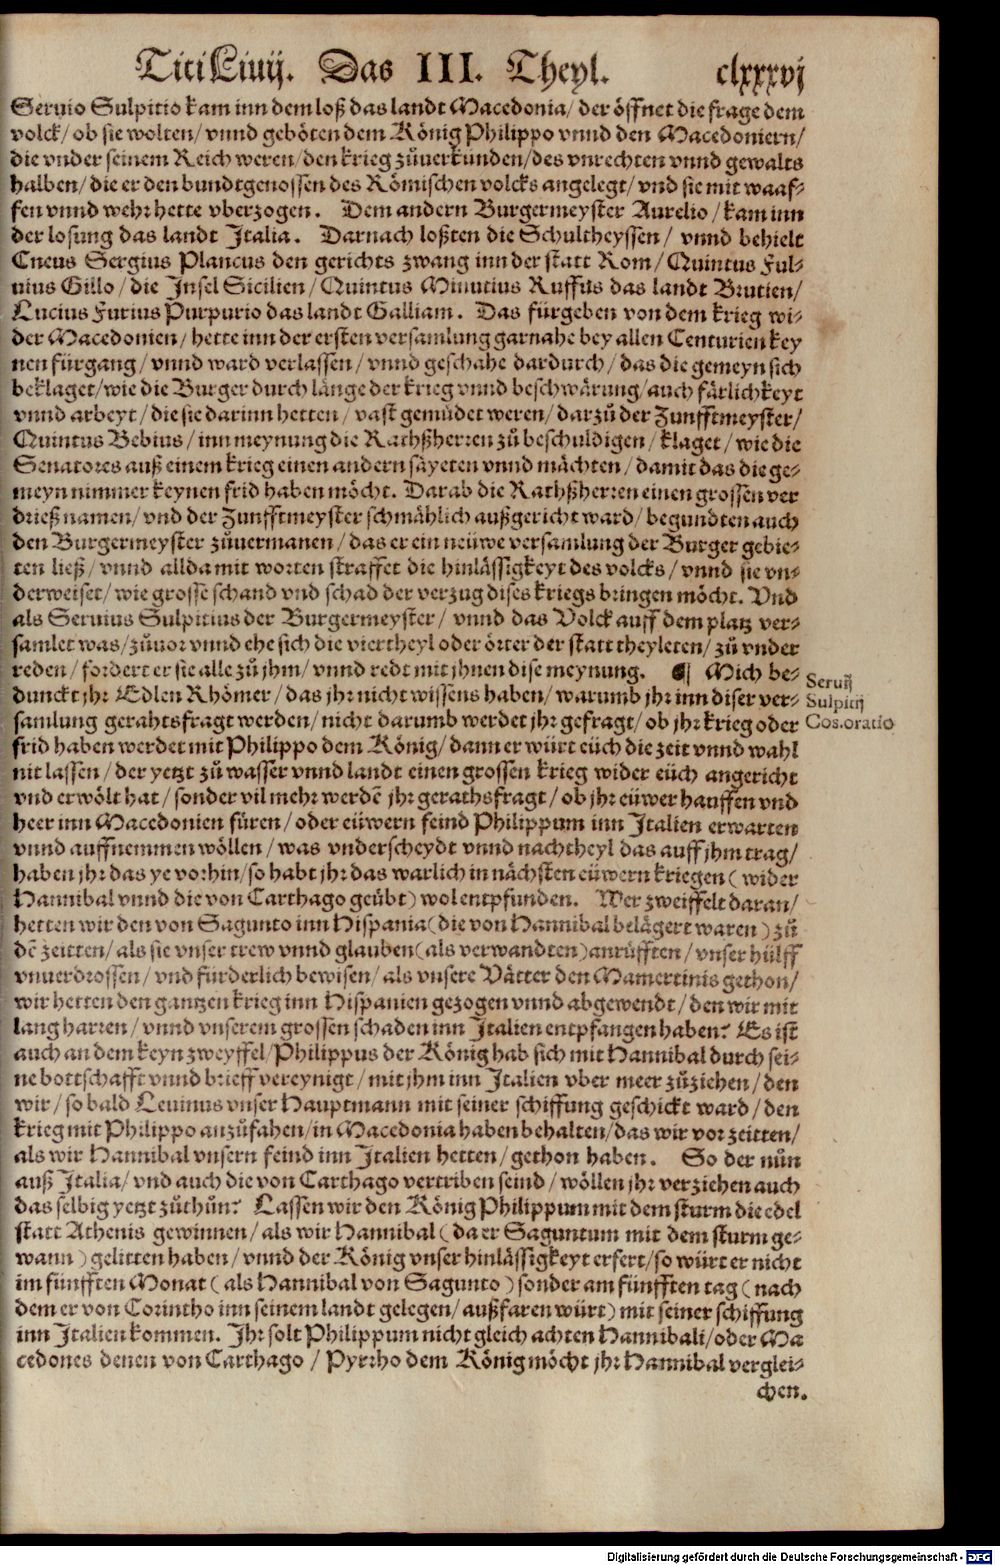 Titi Livij. Das III. Theyl. clxxxvj
Seruio Sulpitio kam inn dem loß das landt Macedonia/ der öffnet die frage dem
volck/ ob sie wolten/ vnnd geböten dem König Philippo vnnd den Macedoniern/
die vnder seinem Reich weren/ den krieg zůuerkünden/ des vnrechten vnnd gewalts
halben/ die er den bundtgenossen des Römischen volcks angelegt/ vnd sie mit waaf-
fen vnnd wehr hette vberzogen. Dem andern Burgermeyster Aurelio/ kam inn
der losung das landt Italia. Darnach loßten die Schultheyssen/ vnnd behielt
Cneus Sergius Plancus den gerichts zwang inn der statt Rom/ Quintus Ful-
uius Gillo/ die Insel Sicilien/ Quintus Minutius Ruffus das landt Brutien/
Lucius Furius Purpurio das landt Galliam. Das fürgeben von dem krieg wi-
der Macedonien/ hette inn der ersten versamlung garnahe bey allen Centurien key
nen fürgang/ vnnd ward verlassen/ vnnd geschahe dardurch/ das die gemeyn sich
beklaget/ wie die Burger durch länge der krieg vnnd beschwärung/ auch färlichkeyt
vnnd arbeyt/ die sie darinn hetten/ vast gemüdet weren/ darzů der Zunfftmeyster/
Quintus Bebius/ inn meynung die Rathßherren zů beschuldigen/ klaget/ wie die
Senatores auß einem krieg einen andern säyeten vnnd mächten/ damit das die ge-
meyn nimmer keynen frid haben möcht. Darab die Rathßherren einen grossen ver
drieß namen/ vnd der Zunfftmeyster schmählich außgericht ward/ begundten auch
den Burgermeyster zůuermanen/ das er ein neüwe versamlung der Burger gebie-
ten ließ/ vnnd allda mit worten straffet die hinlässigkeyt des volcks/ vnnd sie vn-
derweiset/ wie grosse schand vnd schad der verzug dises kriegs bringen möcht. Vnd
als Seruius Sulpitius der Burgermeyster/ vnnd das Volck auff dem platz ver-
samlet was/ zůuor vnnd ehe sich die viertheyl oder örter der statt theyleten/ zů vnder
reden/ fordert er sie alle zů jhm/ vnnd redt mit jhnen dise meynung. Mich be-
dunckt jhr Edlen Rhömer/ das jhr nicht wissens haben/ warumb jhr inn diser ver-
samlung gerahtsfragt werden/ nicht darumb werdet jhr gefragt/ ob jhr krieg oder
frid haben werdet mit Philippo dem König/ dann er würt eüch die zeit vnnd wahl
nit lassen/ der yetzt zů wasser vnnd landt einen grossen krieg wider eüch angericht
vnd erwölt hat/ sonder vil mehr werdē jhr gerathsfragt/ ob jhr eüwer hauffen vnd
heer inn Macedonien füren/ oder eüwern feind Philippum inn Italien erwarten
vnnd auffnemmen wöllen/ was vnderscheydt vnnd nachtheyl das auff jhm trag/
haben jhr das ye vorhin/ so habt jhr das warlich in nächsten eüwern kriegen (wider
Hannibal vnnd die von Carthago geübt) wol entpfunden. Wer zweiffelt daran/
hetten wir den von Sagunto inn Hispania (die von Hannibal belägert waren) zů
dē zeitten/ als sie vnser trew vnnd glauben (als verwandten) anrůfften/ vnser hülff
vnuerdrossen/ vnd fürderlich bewisen/ als vnsere Vätter den Mamertinis gethon/
wir hetten den gantzen krieg inn Hispanien gezogen vnnd abgewendt/ den wir mit
lang harren/ vnnd vnserem grossen schaden inn Italien entpfangen haben? Es ist
auch an dem keyn zweyffel/ Philippus der König hab sich mit Hannibal durch sei-
ne bottschafft vnnd brieff vereynigt/ mit jhm inn Italien vber meer zůziehen/ den
wir/ so bald Leuinus vnser Hauptmann mit seiner schiffung geschickt ward/ den
krieg mit Philippo anzůfahen/ in Macedonia haben behalten/ das wir vor zeitten/
als wir Hannibal vnsern feind inn Italien hetten/ gethon haben. So der nůn
auß Italia/ vnd auch die von Carthago vertriben seind/ wöllen jhr verziehen auch
das selbig yetzt zůthůn? Lassen wir den König Philippum mit dem sturm die edel
statt Athenis gewinnen/ als wir Hannibal (da er Saguntum mit dem sturm ge-
wann) gelitten haben/ vnnd der König vnser hinlässigkeyt erfert/ so würt er nicht
im fünfften Monat (als Hannibal von Sagunto) sonder am fünfften tag (nach
dem er von Corintho inn seinem landt gelegen/ außfaren würt) mit seiner schiffung
inn Italien kommen. Ihr solt Philippum nicht gleich achten Hannibali/ oder Ma
cedones denen von Carthago/ Pyrrho dem König möcht jhr Hannibal verglei-
chen.
Seruij
Sulpitij
Cos. oratio
Digitalisierung gefördert durch die Deutsche Forschungsgemeinschaft - DFG